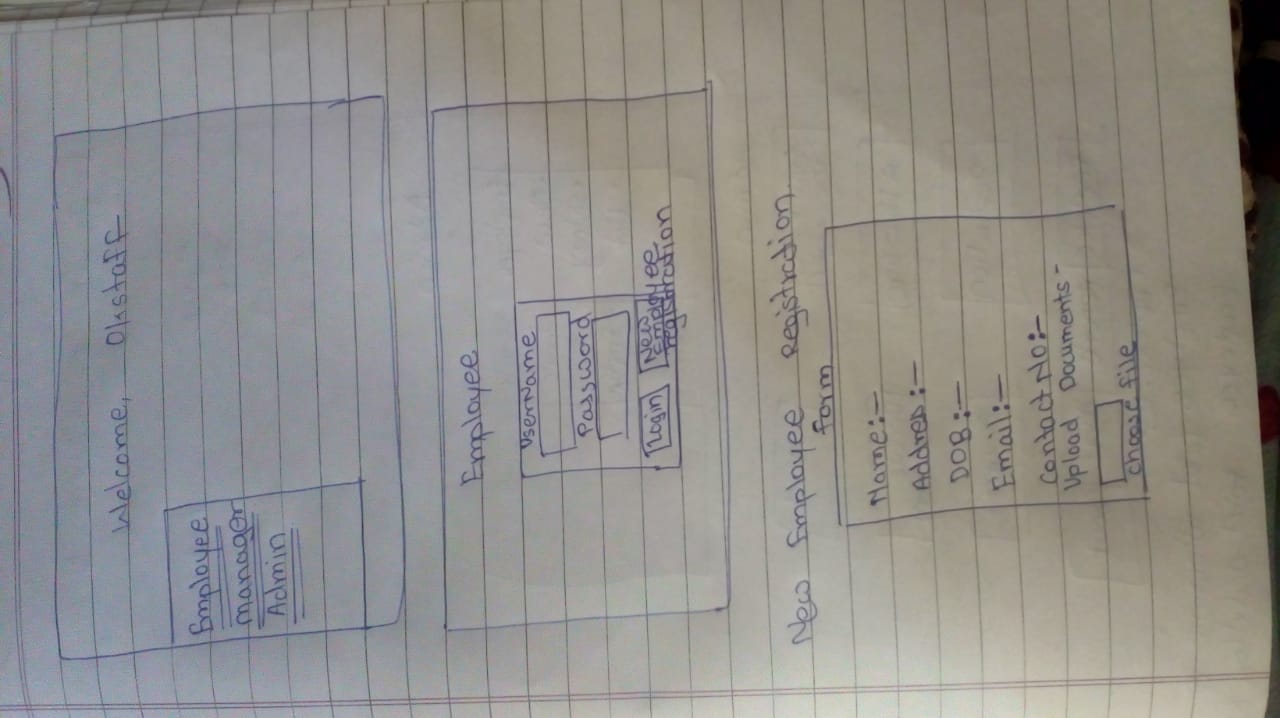 Welcome, Okstaff
Employee
manager
Admin
Employee
UserName
Password
Login
New
Employee
registration
New Employee Registration
form
Name:-
Addres:-
DOB:-
Email:-
Contact No:-
Upload Documents-
choose file